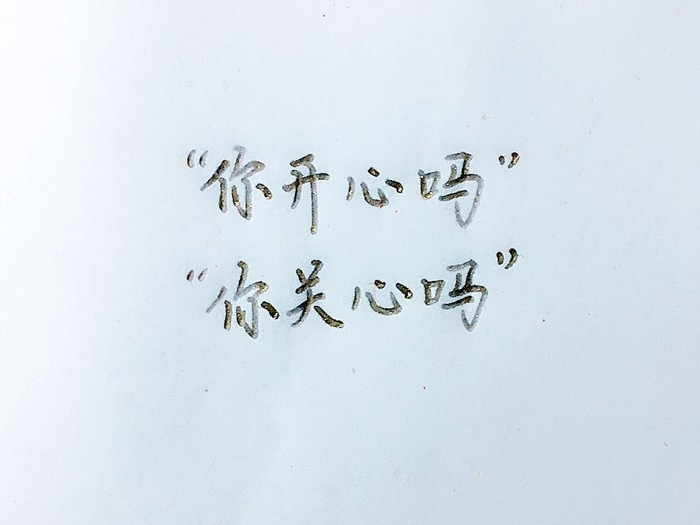 “你开心吗”
“你关心吗”